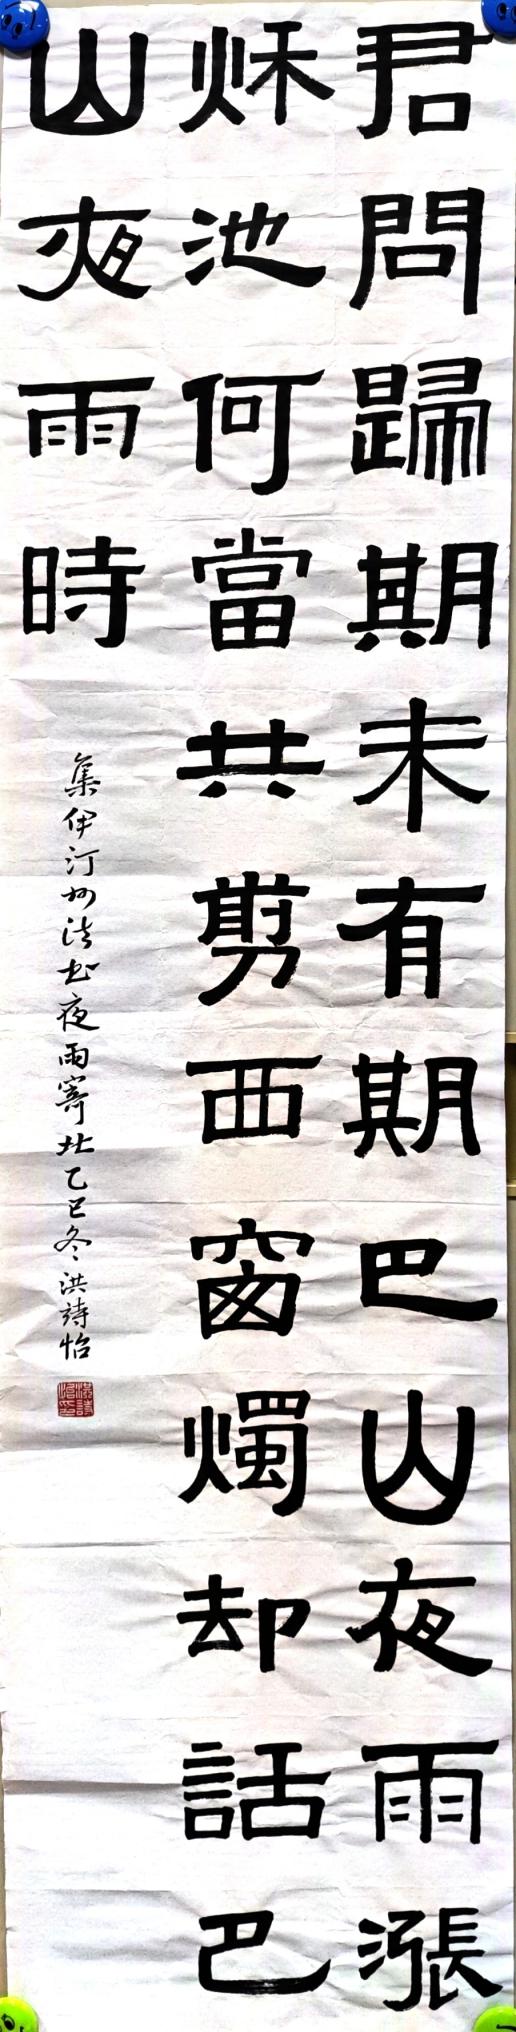 君問歸期未有期巴山夜雨漲
秌池何當共剪西窗燭却話巴
山夜雨時
集伊汀州法書夜雨寄北乙巳冬洪詩怡
洪詩怡印